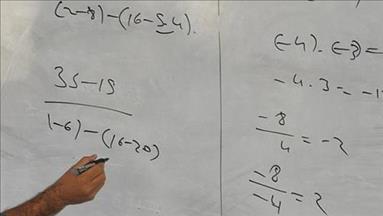 (2-8)-(16-5.4).
35-15
(-6)-(16-20)
(-4).(-3)=
-4.3=-1
-8
4 =-2
-8
-4 =2